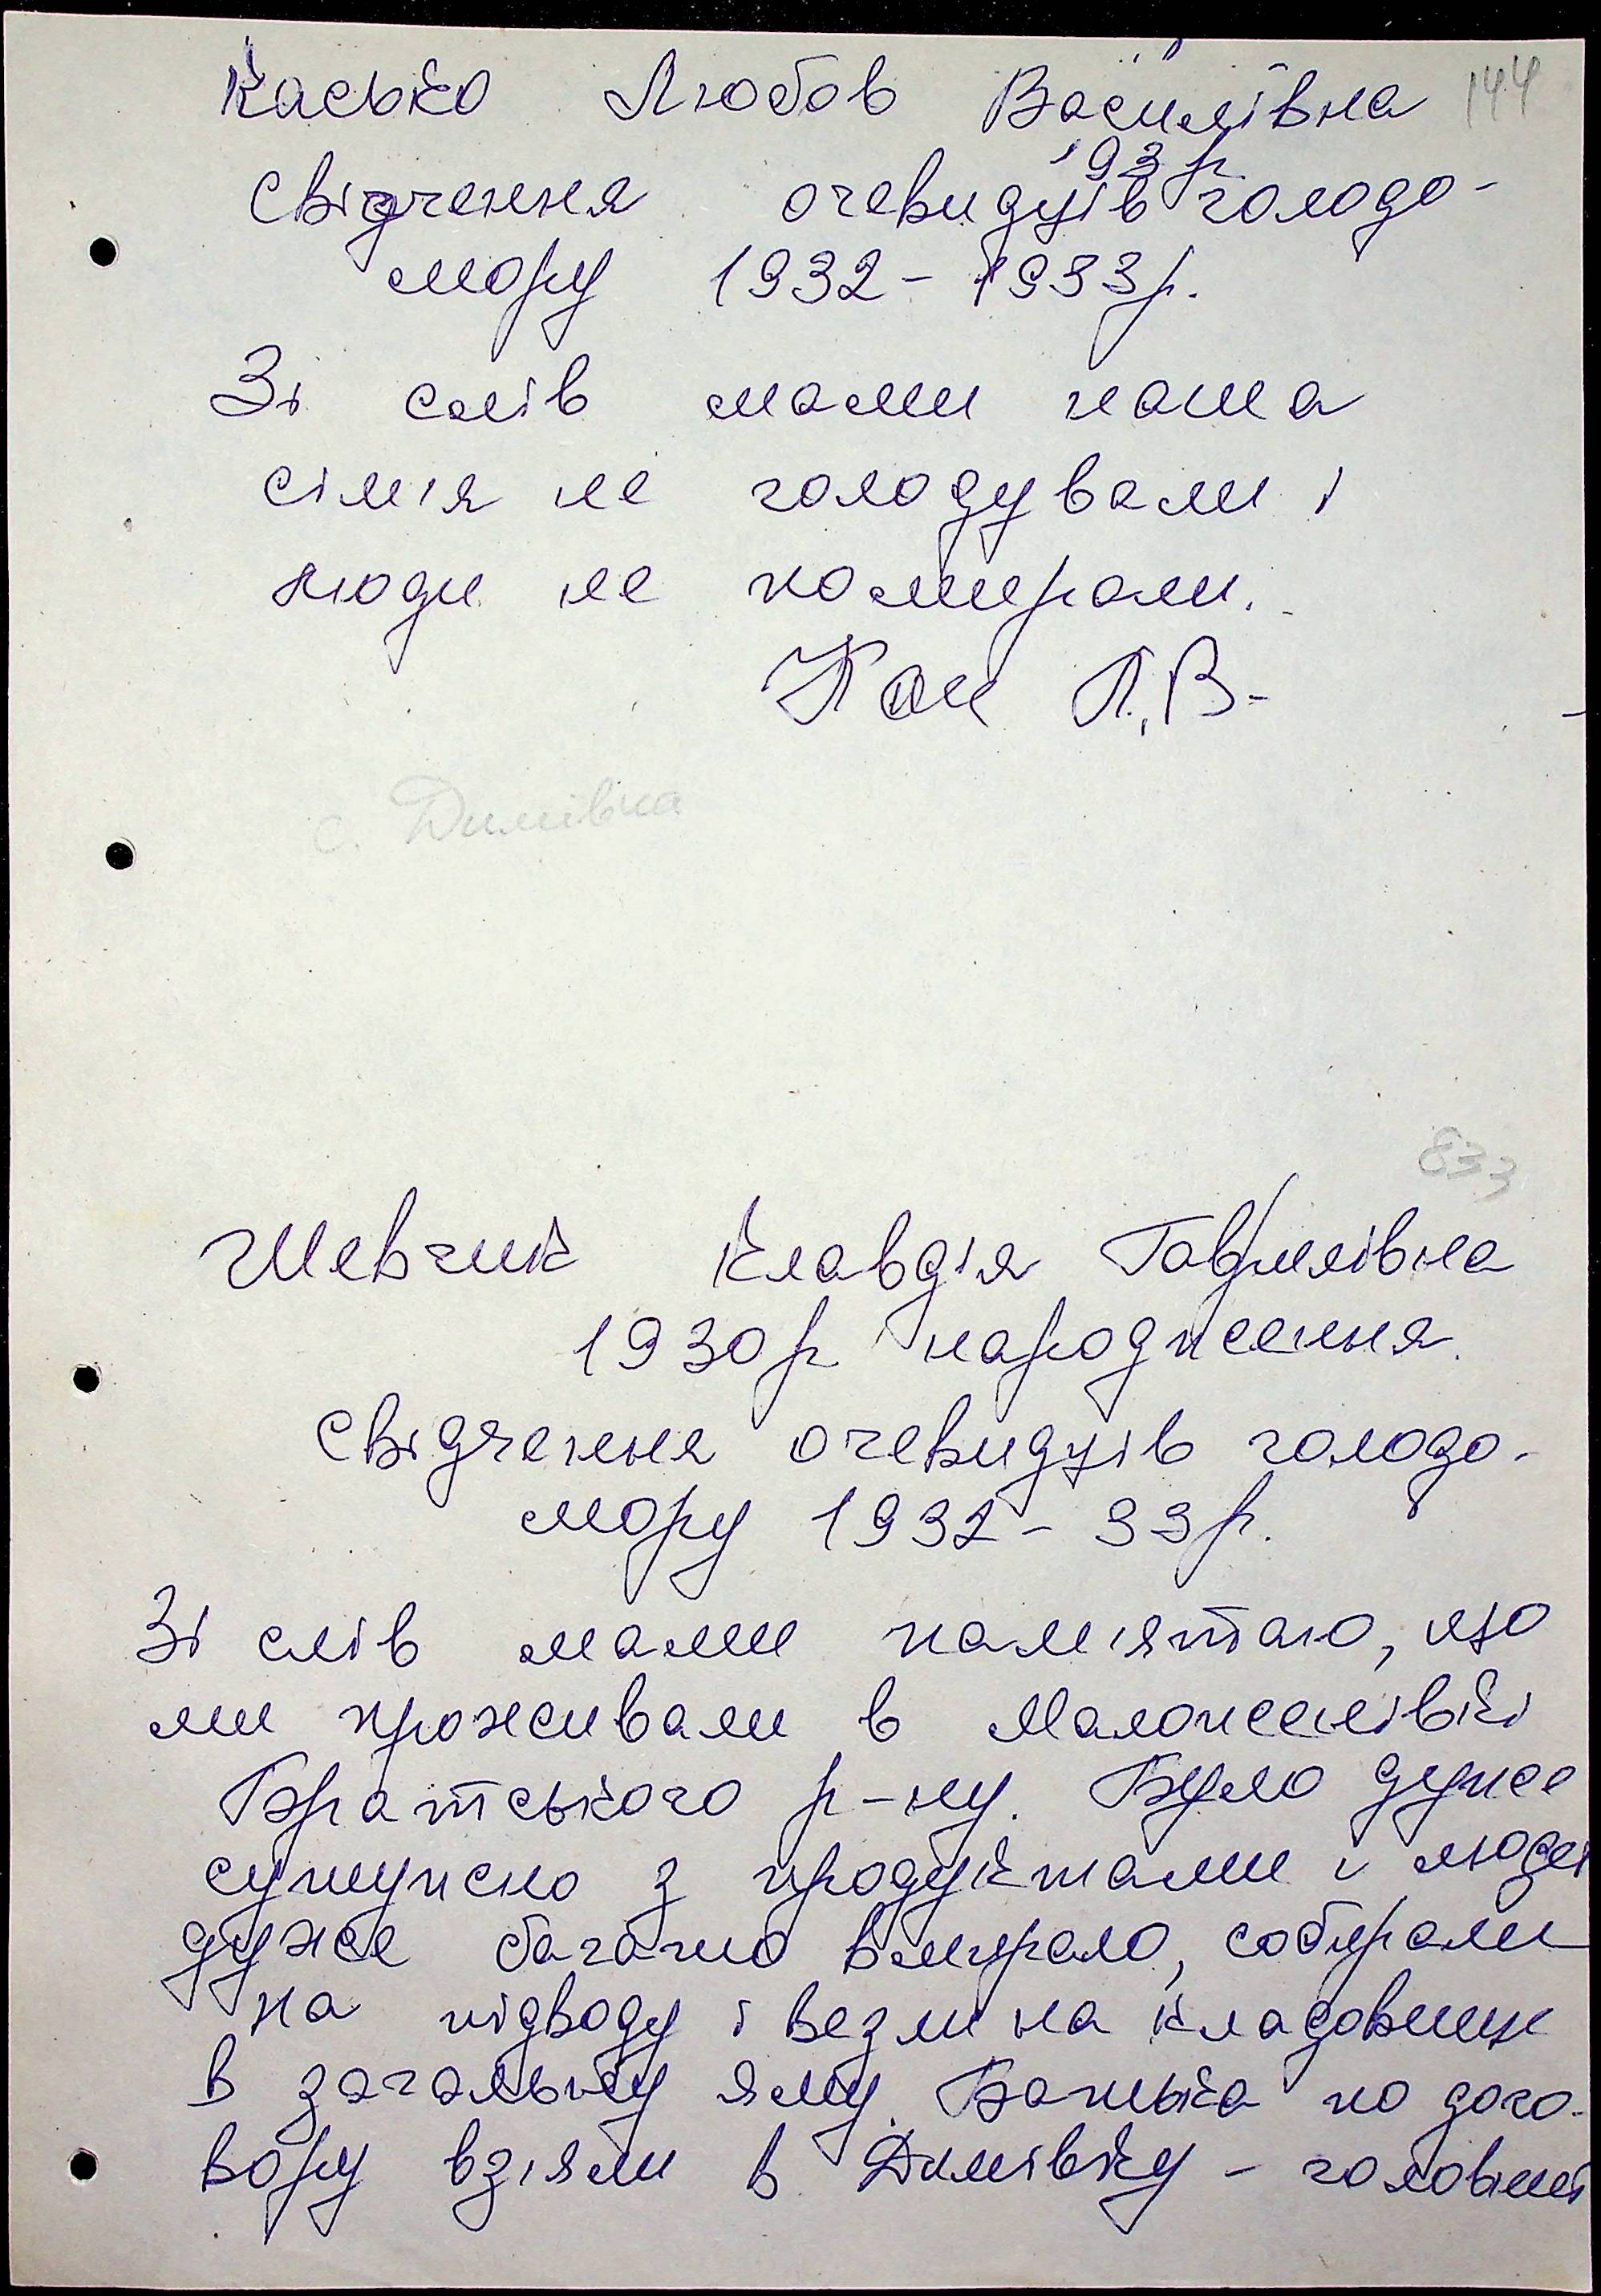 Касько Любов Василівна 144
193 р
свідчення очевидців голодо-
мору 1932 - 1933р.
Зі слів мами наша
сім'я не голодували і
люди не помирали.
Кас Л.В-
с. Димівка
833
Шевчик Клавдія Гаврилівна
1930р народження.
свідчення очевидців голодо-
мору 1932 - 33р.
Зі слів мами пам'ятаю, що
ми проживали в Маложенівкі
Братського р-ну. Було дуже
сутужно з продуктами і людей
дуже багато вмирало, собирали
на підводу і везли на кладовище
в загальну яму. Батька по дого-
вору взяли в Димівку -